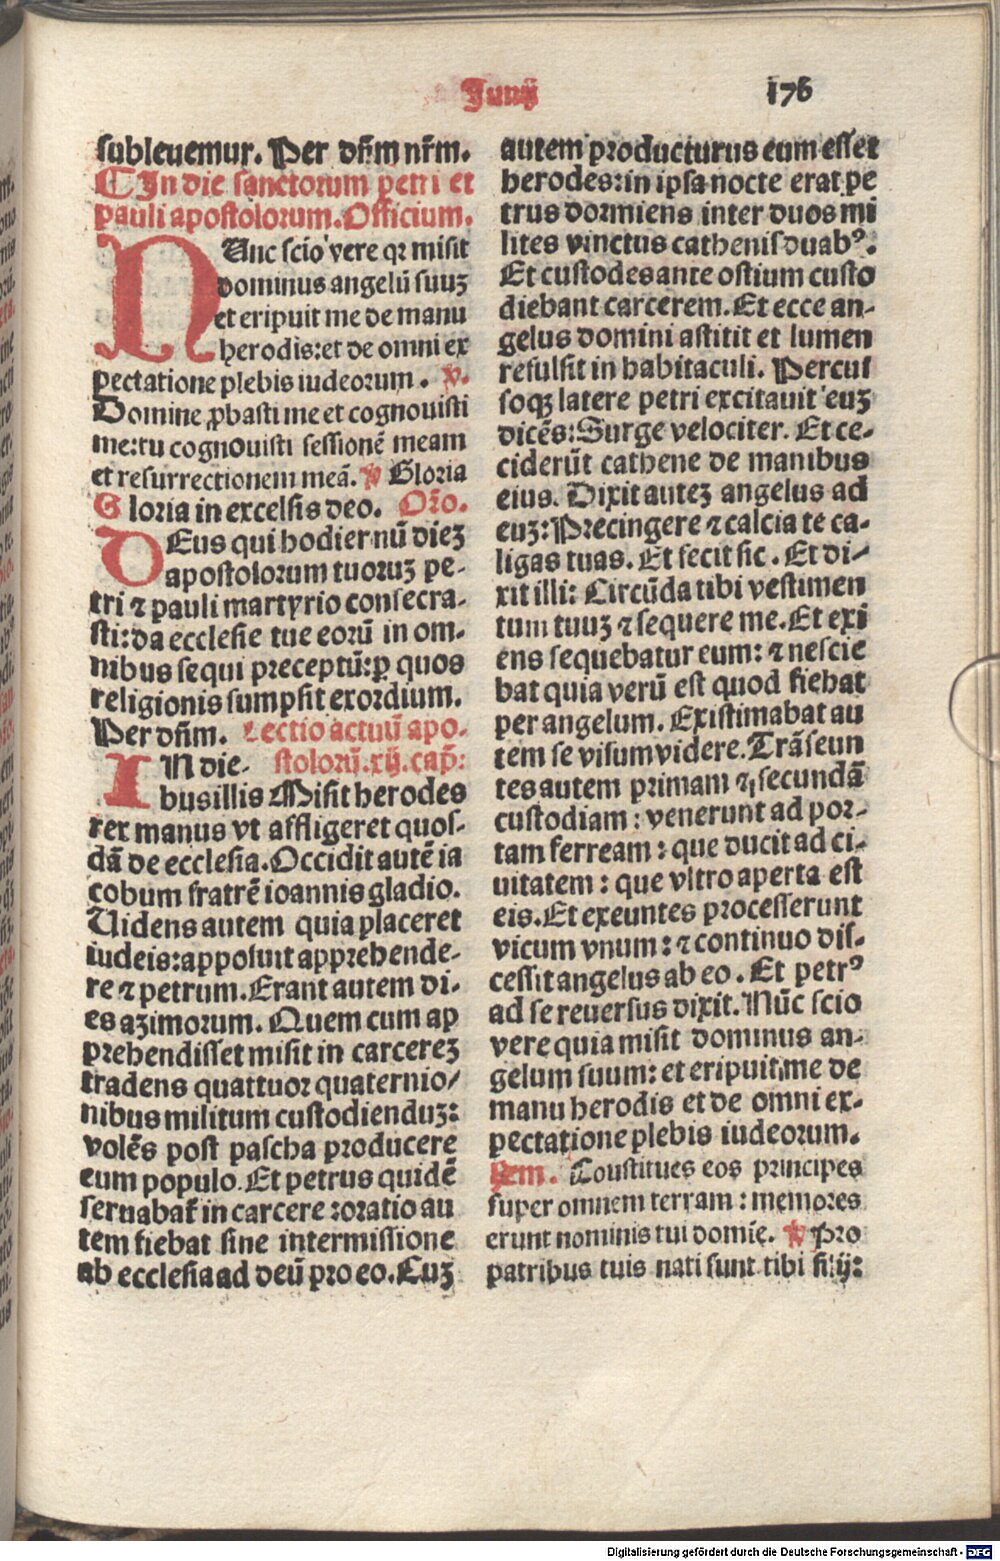 Junij
176
subleuemur. Per dñm nr̄m.
¶ In die sanctorum petri et
pauli apostolorum. Officium.
NUnc scio vere qꝛ misit
dominus angelū suuʒ
et eripuit me de manu
herodis: et de omni ex
pectatione plebis iudeorum. v.
Domine ꝓbasti me et cognouisti
me: tu cognouisti sessionē meam
et resurrectionem meā. v Gloria
Gloria in excelsis deo. Orō.
DEus qui hodiernū dieʒ
apostolorum tuoruʒ pe-
tri ⁊ pauli martyrio consecra-
sti: da ecclesie tue eorū in om-
nibus sequi preceptū: ꝑ quos
religionis sumpsit exordium.
Per dñm. Lectio actuū apo-
stolorū. xij. cap̄:
IN die-
bus illis Misit herodes
rex manus vt affligeret quos-
dā de ecclesia. Occidit autē ia
cobum fratrē ioannis gladio.
Uidens autem quia placeret
iudeis: apposuit apprehende-
re ⁊ petrum. Erant autem di-
es azimorum. Quem cum ap
prehendisset misit in carcereʒ
tradens quattuor quaternio/
nibus militum custodienduʒ:
volēs post pascha producere
eum populo. Et petrus quidē
seruabat᷑ in carcere: oratio au
tem fiebat sine intermissione
ab ecclesia ad deū pro eo. Cuʒ
autem producturus eum esset
herodes: in ipsa nocte erat pe
trus dormiens inter duos mi
lites vinctus cathenis duabꝰ.
Et custodes ante ostium custo
diebant carcerem. Et ecce an-
gelus domini astitit et lumen
refulsit in habitaculi. Percus
soqʒ latere petri excitauit euʒ
dicēs: Surge velociter. Et ce-
ciderūt cathene de manibus
eius. Dixit auteʒ angelus ad
euʒ: Precingere ⁊ calcia te ca-
ligas tuas. Et fecit sic. Et di/
xit illi: Circūda tibi vestimen
tum tuuʒ ⁊ sequere me. Et exi
ens sequebatur eum: ⁊ nescie
bat quia verū est quod fiebat
per angelum. Existimabat au
tem se visum videre. Trāseun
tes autem primam ⁊ secundā
custodiam: venerunt ad por-
tam ferream: que ducit ad ci-
uitatem: que vltro aperta est
eis. Et exeuntes processerunt
vicum vnum: ⁊ continuo dis-
cessit angelus ab eo. Et petrꝰ
ad se reuersus dixit. Nūc scio
vere quia misit dominus an-
gelum suum: et eripuit me de
manu herodis et de omni ex-
pectatione plebis iudeorum.
Constitues eos principes
super omnem terram: memores
erunt nominis tui domie. v Pro
patribus tuis nati sunt tibi filij:
Digitalisierung gefördert durch die Deutsche Forschungsgemeinschaft - DFG